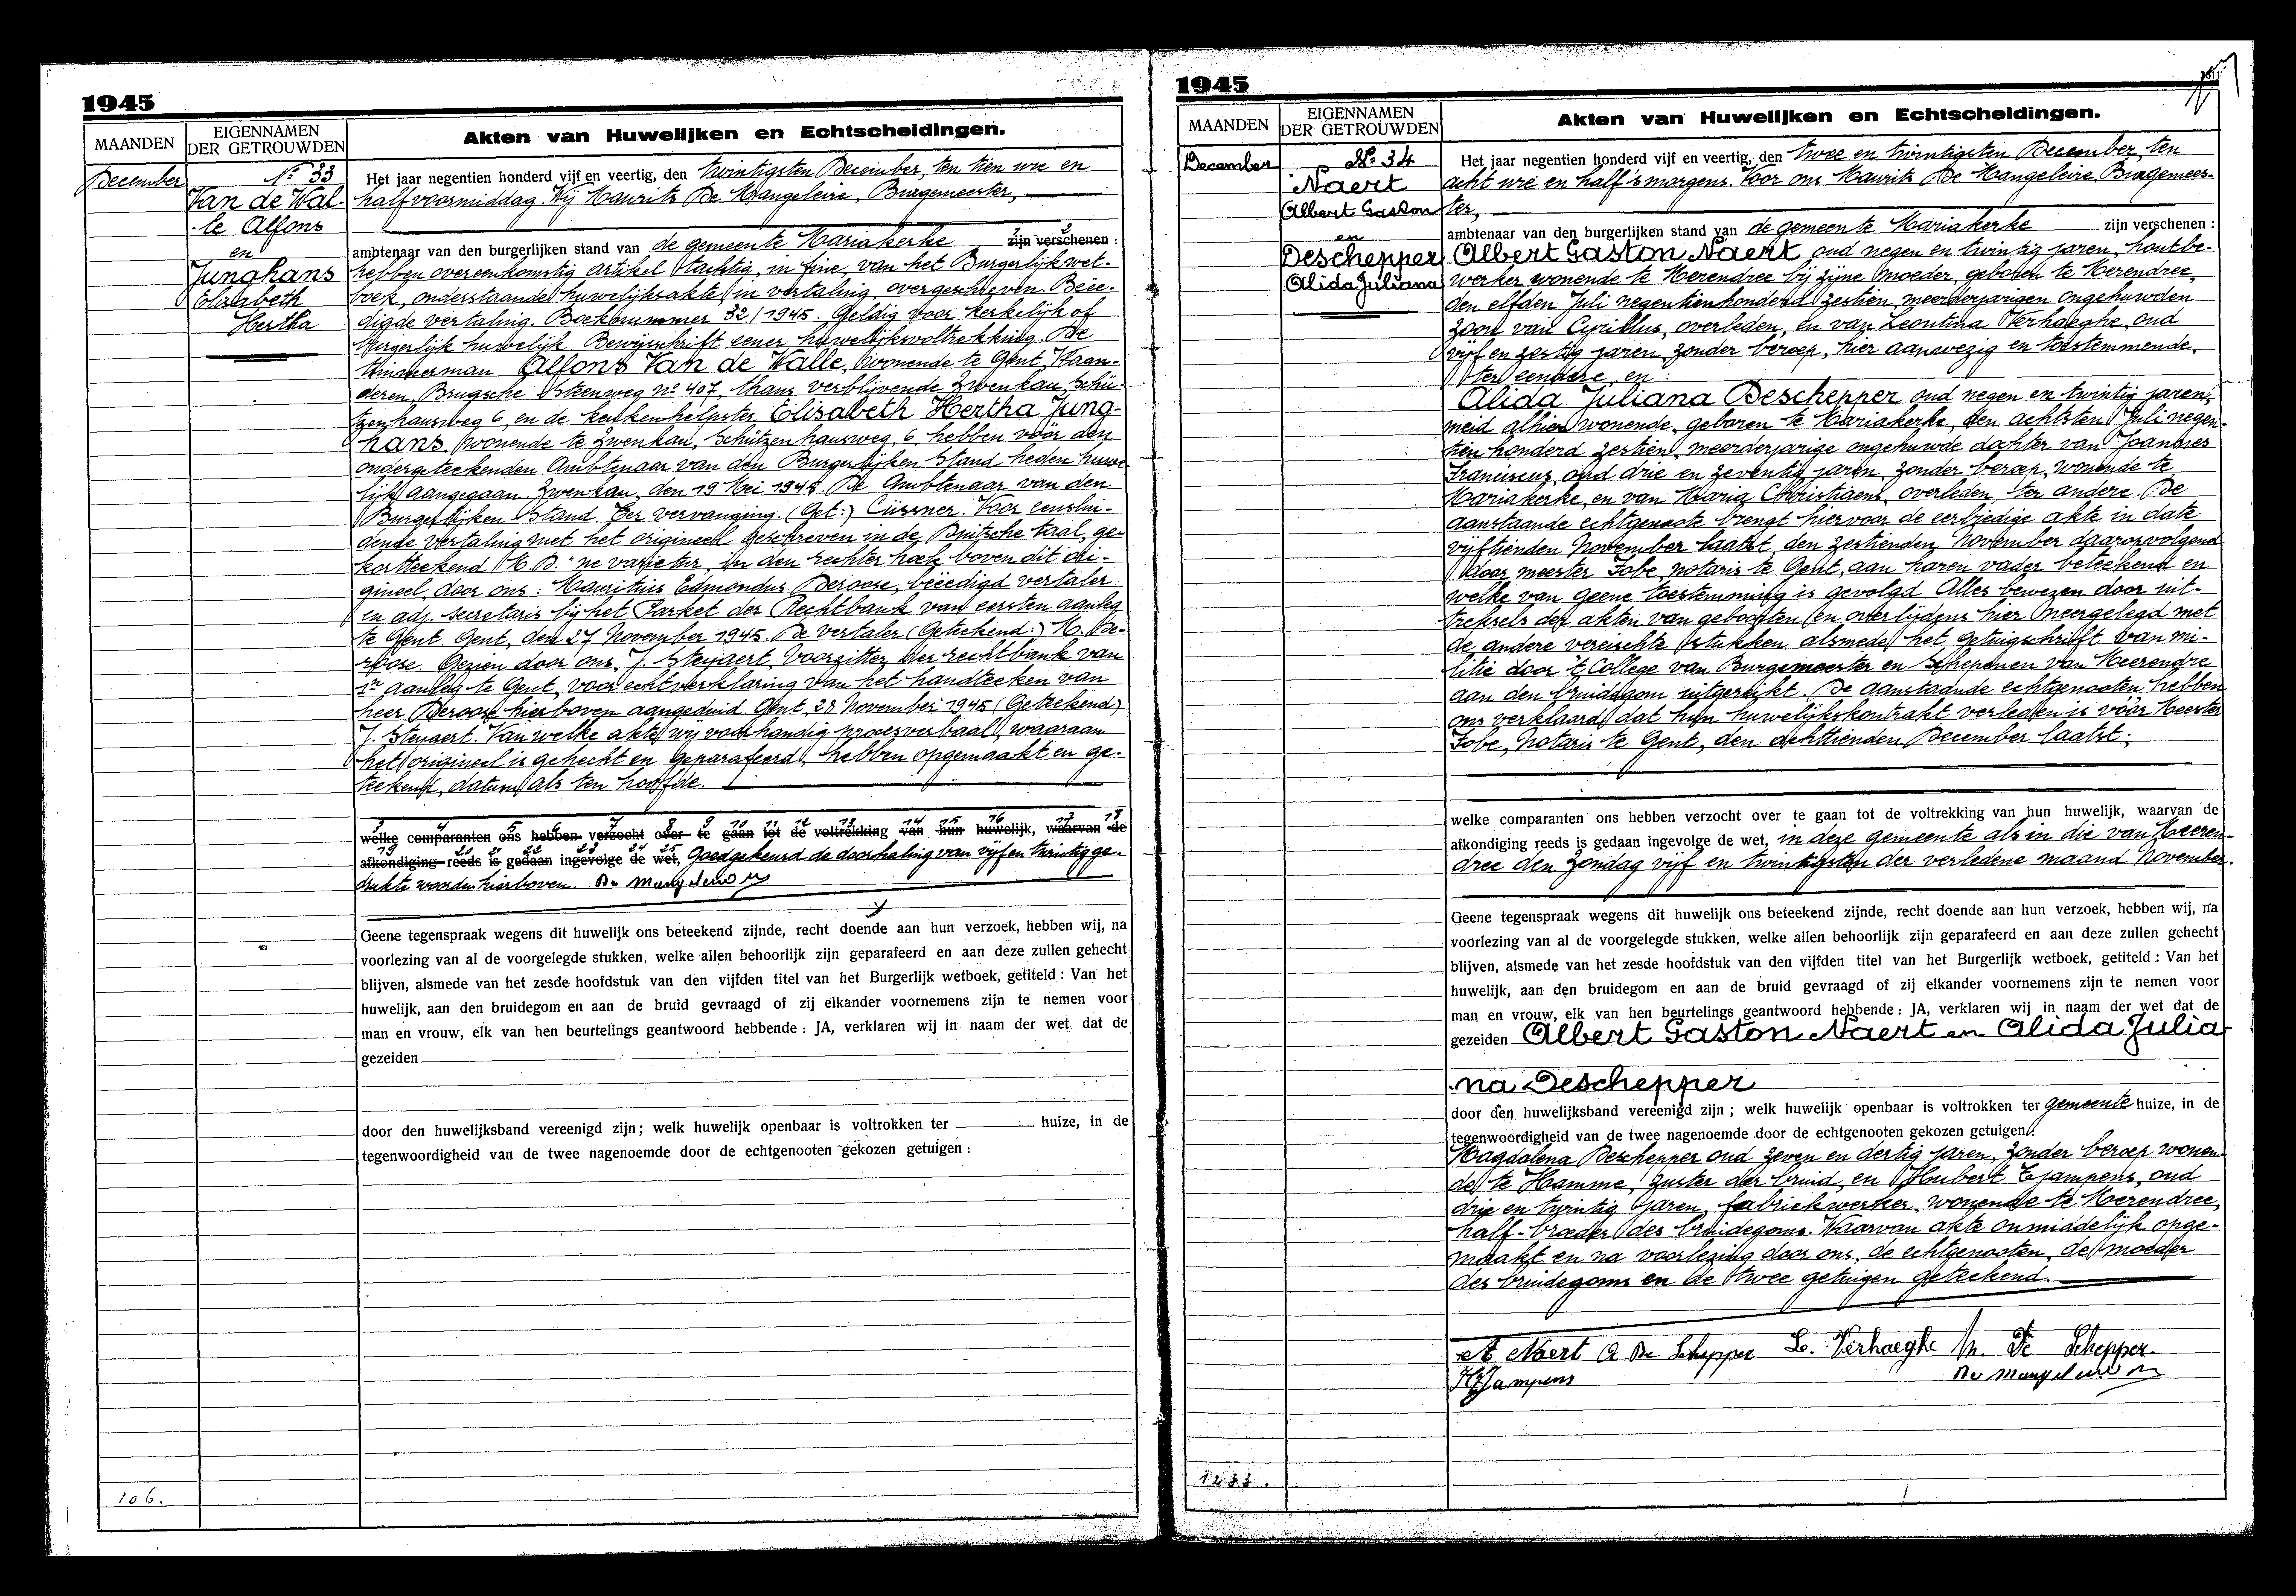 1945
MAANDEN
EIGENNAMEN
DER GETROUWDEN
Akten van Huwelijken en Echtscheidingen.
December
Nº 33
Van de Wal-
le Alfons
en
Junghans
Elisabeth
Hertha
Het jaar negentien honderd vijf en veertig, den twintigsten December, ten tien ure en
half voormiddag. Wij Maurits De Mangeleire, Burgemeester,
ambtenaar van den burgerlijken stand van de gemeente Mariakerke zijn verschenen :
hebben overeenkomstig artikel tachtig, in fine, van het Burgerlijk wet-
boek, onderstaande huwelijksakte in vertaling overgeschreven. Beëe-
digde vertaling. Boeknummer 32/1945. Geldig voor kerkelijk of
burgerlijk huwelijk. Bewijsschrift eener huwelijksvoltrekking. De
timmerman Alfons Van de Walle, wonende te Gent, Vlaan-
deren, Brugsche Steenweg nº 407, thans verblijvende Zwenkau, Schü-
tzenhausweg 6, en de keukenhelpster Elisabeth Hertha Jung-
hans, wonende te Zwenkau, Schützenhausweg, 6, hebben vóór den
ondergeteekenden Ambtenaar van den Burgerlijken Stand heden huwe-
lijk aangegaan. Zwenkau, den 19 Mei 1945. De Ambtenaar van den
Burgerlijken Stand. Ter vervanging. (Get:) Cüssner. Voor eenslui-
dende vertaling met het origineel geschreven in de Duitsche taal, ge-
kortteekend M.D. "ne varietur, in den rechter hoek boven dit ori-
gineel, door ons: Mauritius Edmondus Deroose, beëedigd vertaler
en adj. secretaris bij het Parket der Rechtbank van eersten aanleg
te Gent. Gent, den 27 November 1945. De vertaler (Geteekend:) M. De-
roose. Gezien door ons, J. Steyaert, Voorzitter der rechtbank van
1n aanleg te Gent, voor echtverklaring van het handteeken van
heer Deroose hierboven aangeduid. Gent, 28 November 1945 (Geteekend)
J. Steyaert. Van welke akte wij voorhandig procesverbaal, waaraan
het origineel is gehecht en geparafeerd, hebben opgemaakt en ge-
teekend, datum als ten hoofde.
welke comparanten ons hebben verzocht over te gaan tot de voltrekking van hun huwelijk, waarvan de
afkondiging reeds is gedaan ingevolge de wet, Goedgekeurd de doorhaling van vijf en twintig ge-
drukte woorden hierboven. De Mangeleire M
Geene tegenspraak wegens dit huwelijk ons beteekend zijnde, recht doende aan hun verzoek, hebben wij, na
voorlezing van al de voorgelegde stukken, welke allen behoorlijk zijn geparafeerd en aan deze zullen gehecht
blijven, alsmede van het zesde hoofdstuk van den vijfden titel van het Burgerlijk wetboek, getiteld : Van het
huwelijk, aan den bruidegom en aan de bruid gevraagd of zij elkander voornemens zijn te nemen voor
man en vrouw, elk van hen beurtelings geantwoord hebbende : JA, verklaren wij in naam der wet dat de
gezeiden
door den huwelijksband vereenigd zijn ; welk huwelijk openbaar is voltrokken ter huize, in de
tegenwoordigheid van de twee nagenoemde door de echtgenooten gekozen getuigen :
106.
1945
MAANDEN
EIGENNAMEN
DER GETROUWDEN
Akten van Huwelijken en Echtscheidingen.
December
Nº 34
Naert
Albert Gaston
en
Deschepper
Alida Juliana
Het jaar negentien honderd vijf en veertig, den twee en twintigsten December, ten
acht ure en half 's morgens. Voor ons Maurits De Mangeleire, Burgemees-
ter,
ambtenaar van den burgerlijken stand van de gemeente Mariakerke zijn verschenen :
Albert Gaston Naert oud negen en twintig jaren, houtbe-
werker wonende te Merendree bij zijne moeder, geboren te Merendree,
den elfden Juli negentienhonderd zestien, meerderjarigen ongehuwden
zoon van Cyrillus, overleden, en van Leontina Verhaeghe, oud
vijf en zestig jaren, zonder beroep, hier aanwezig en toestemmende,
ter eendere, en :
Alida Juliana Deschepper oud negen en twintig jaren,
meid alhier wonende, geboren te Mariakerke, den achtsten Juli negen-
tien honderd zestien, meerderjarige ongehuwde dochter van Joannes
Franciscus, oud drie en zeventig jaren, zonder beroep, wonende te
Mariakerke, en van Maria Christiaens, overleden, ter andere. De
aanstaande echtgenoote brengt hiervoor de eerbiedige akte in date
vijftienden November laatst, den zestienden November daaropvolgend
door meester Fobe, notaris te Gent, aan haren vader beteekend en
welke van geene toestemming is gevolgd. Alles bewezen door uit-
treksels der akten van geboorten en overlijdens hier neergelegd met
de andere vereischte stukken alsmede het getuigschrift van mi-
litie door 't College van Burgemeester en Schepenen van Meerendre
aan den bruidegom uitgereikt. De aanstaande echtgenooten hebben
ons verklaard dat hun huwelijkskontrakt verleden is vóór Meester
Fobe, Notaris te Gent, den achttienden December laatst;
welke comparanten ons hebben verzocht over te gaan tot de voltrekking van hun huwelijk, waarvan de
afkondiging reeds is gedaan ingevolge de wet, in deze gemeente als in die van Meeren-
dree den Zondag vijf en twintigsten der verledene maand November.
Geene tegenspraak wegens dit huwelijk ons beteekend zijnde, recht doende aan hun verzoek, hebben wij, na
voorlezing van al de voorgelegde stukken, welke allen behoorlijk zijn geparafeerd en aan deze zullen gehecht
blijven, alsmede van het zesde hoofdstuk van den vijfden titel van het Burgerlijk wetboek, getiteld : Van het
huwelijk, aan den bruidegom en aan de bruid gevraagd of zij elkander voornemens zijn te nemen voor
man en vrouw, elk van hen beurtelings geantwoord hebbende : JA, verklaren wij in naam der wet dat de
gezeiden Albert Gaston Naert en Alida Julia-
na Deschepper
door den huwelijksband vereenigd zijn ; welk huwelijk openbaar is voltrokken ter gemeente huize, in de
tegenwoordigheid van de twee nagenoemde door de echtgenooten gekozen getuigen :
Magdalena Deschepper oud zeven en dertig jaren, zonder beroep wonen-
de te Hamme, zuster der bruid, en Hubert Tjampens, oud
drie en twintig jaren, fabriekwerker, wonende te Merendree,
half-broeder des bruidegoms. Waarvan akte onmiddelijk opge-
maakt en na voorlezing door ons, de echtgenooten, de moeder
des bruidegoms en de twee getuigen geteekend.
A Naert A. De Schepper L. Verhaeghe M. De Schepper
H Tjampens De Mangeleire M
1233.